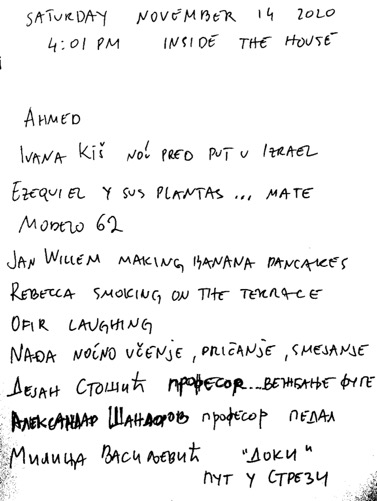 SATURDAY NOVEMBER 14 2020
4:01 PM INSIDE THE HOUSE
AHMED
IVANA KIŠ NOĆ PRED PUT U IZRAEL
EZEQUIEL Y SUS PLANTAS ... MATE
MODELO 62
JAN WILLEM MAKING BANANA PANCAKES
REBECCA SMOKING ON THE TERRACE
OFIR LAUGHING
NAĐA NOĆNO UČENJE, PRIČANJE, SMEJANJE
ДЕЈАН СТОШИЋ ПРОФЕСОР... ВЕЖБАЊЕ ФУГЕ
АЛЕКСАНДАР ШАНДОРОВ ПРОФЕСОР ПЕДАЛ
МИЛИЦА ВАСИЉЕВИЋ "ДОКИ"
ПУТ У СТРЕЗИ